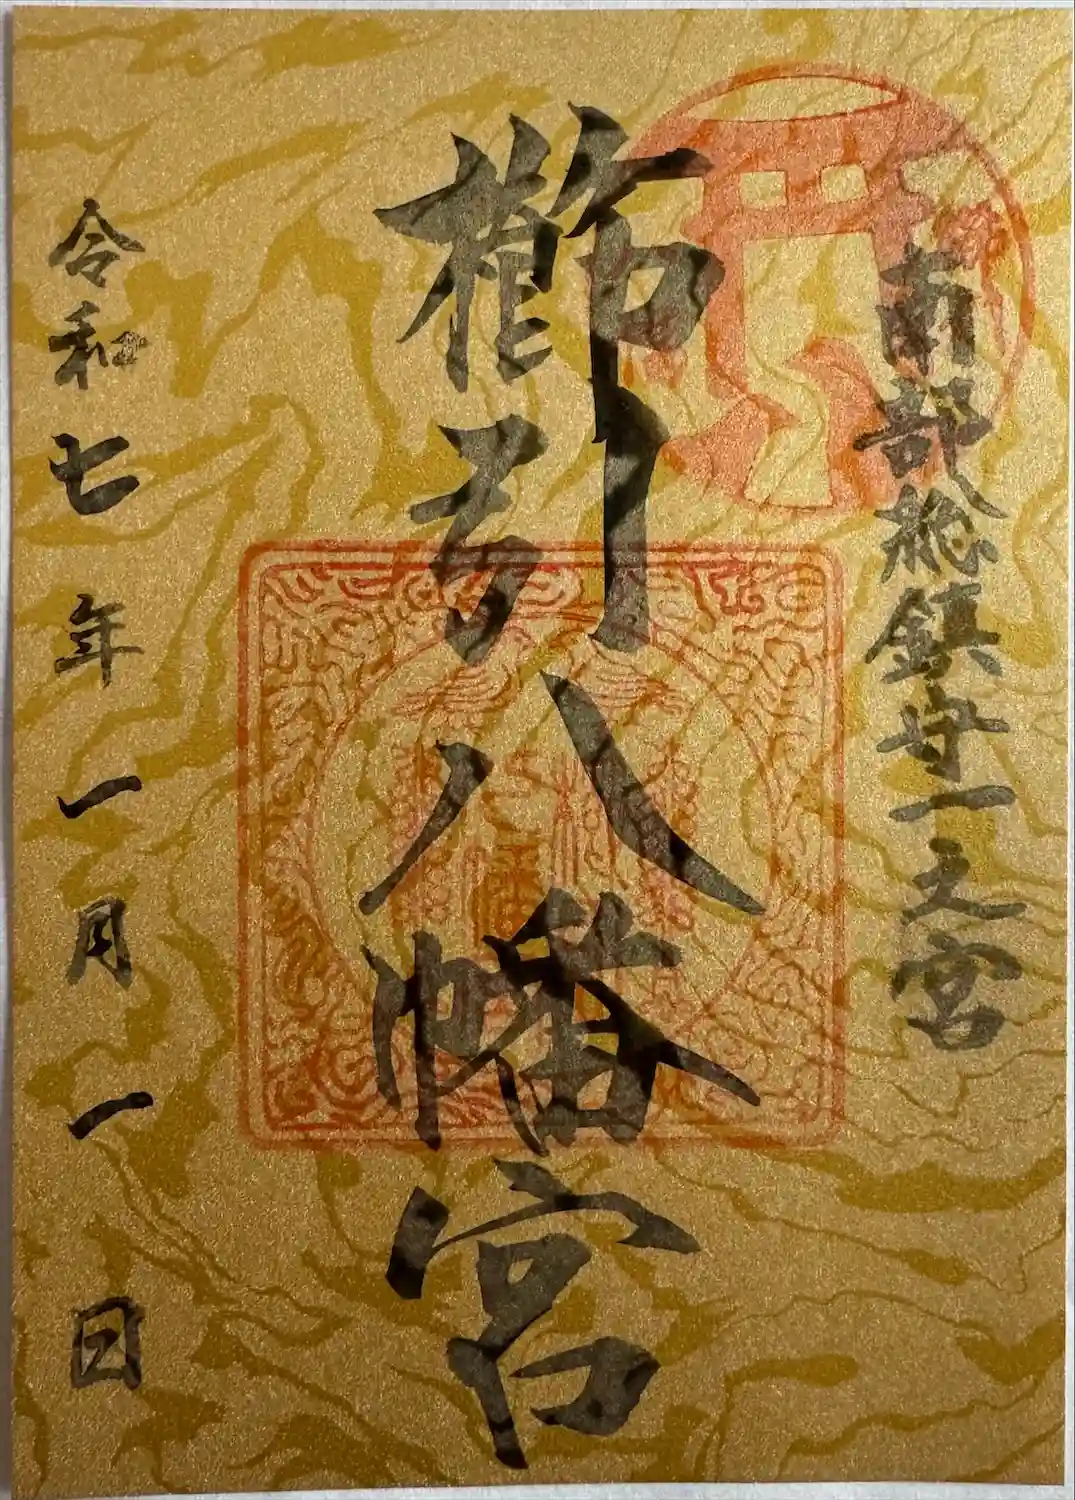 南部総鎮守一之宮
櫛引八幡宮
令和七年一月一日